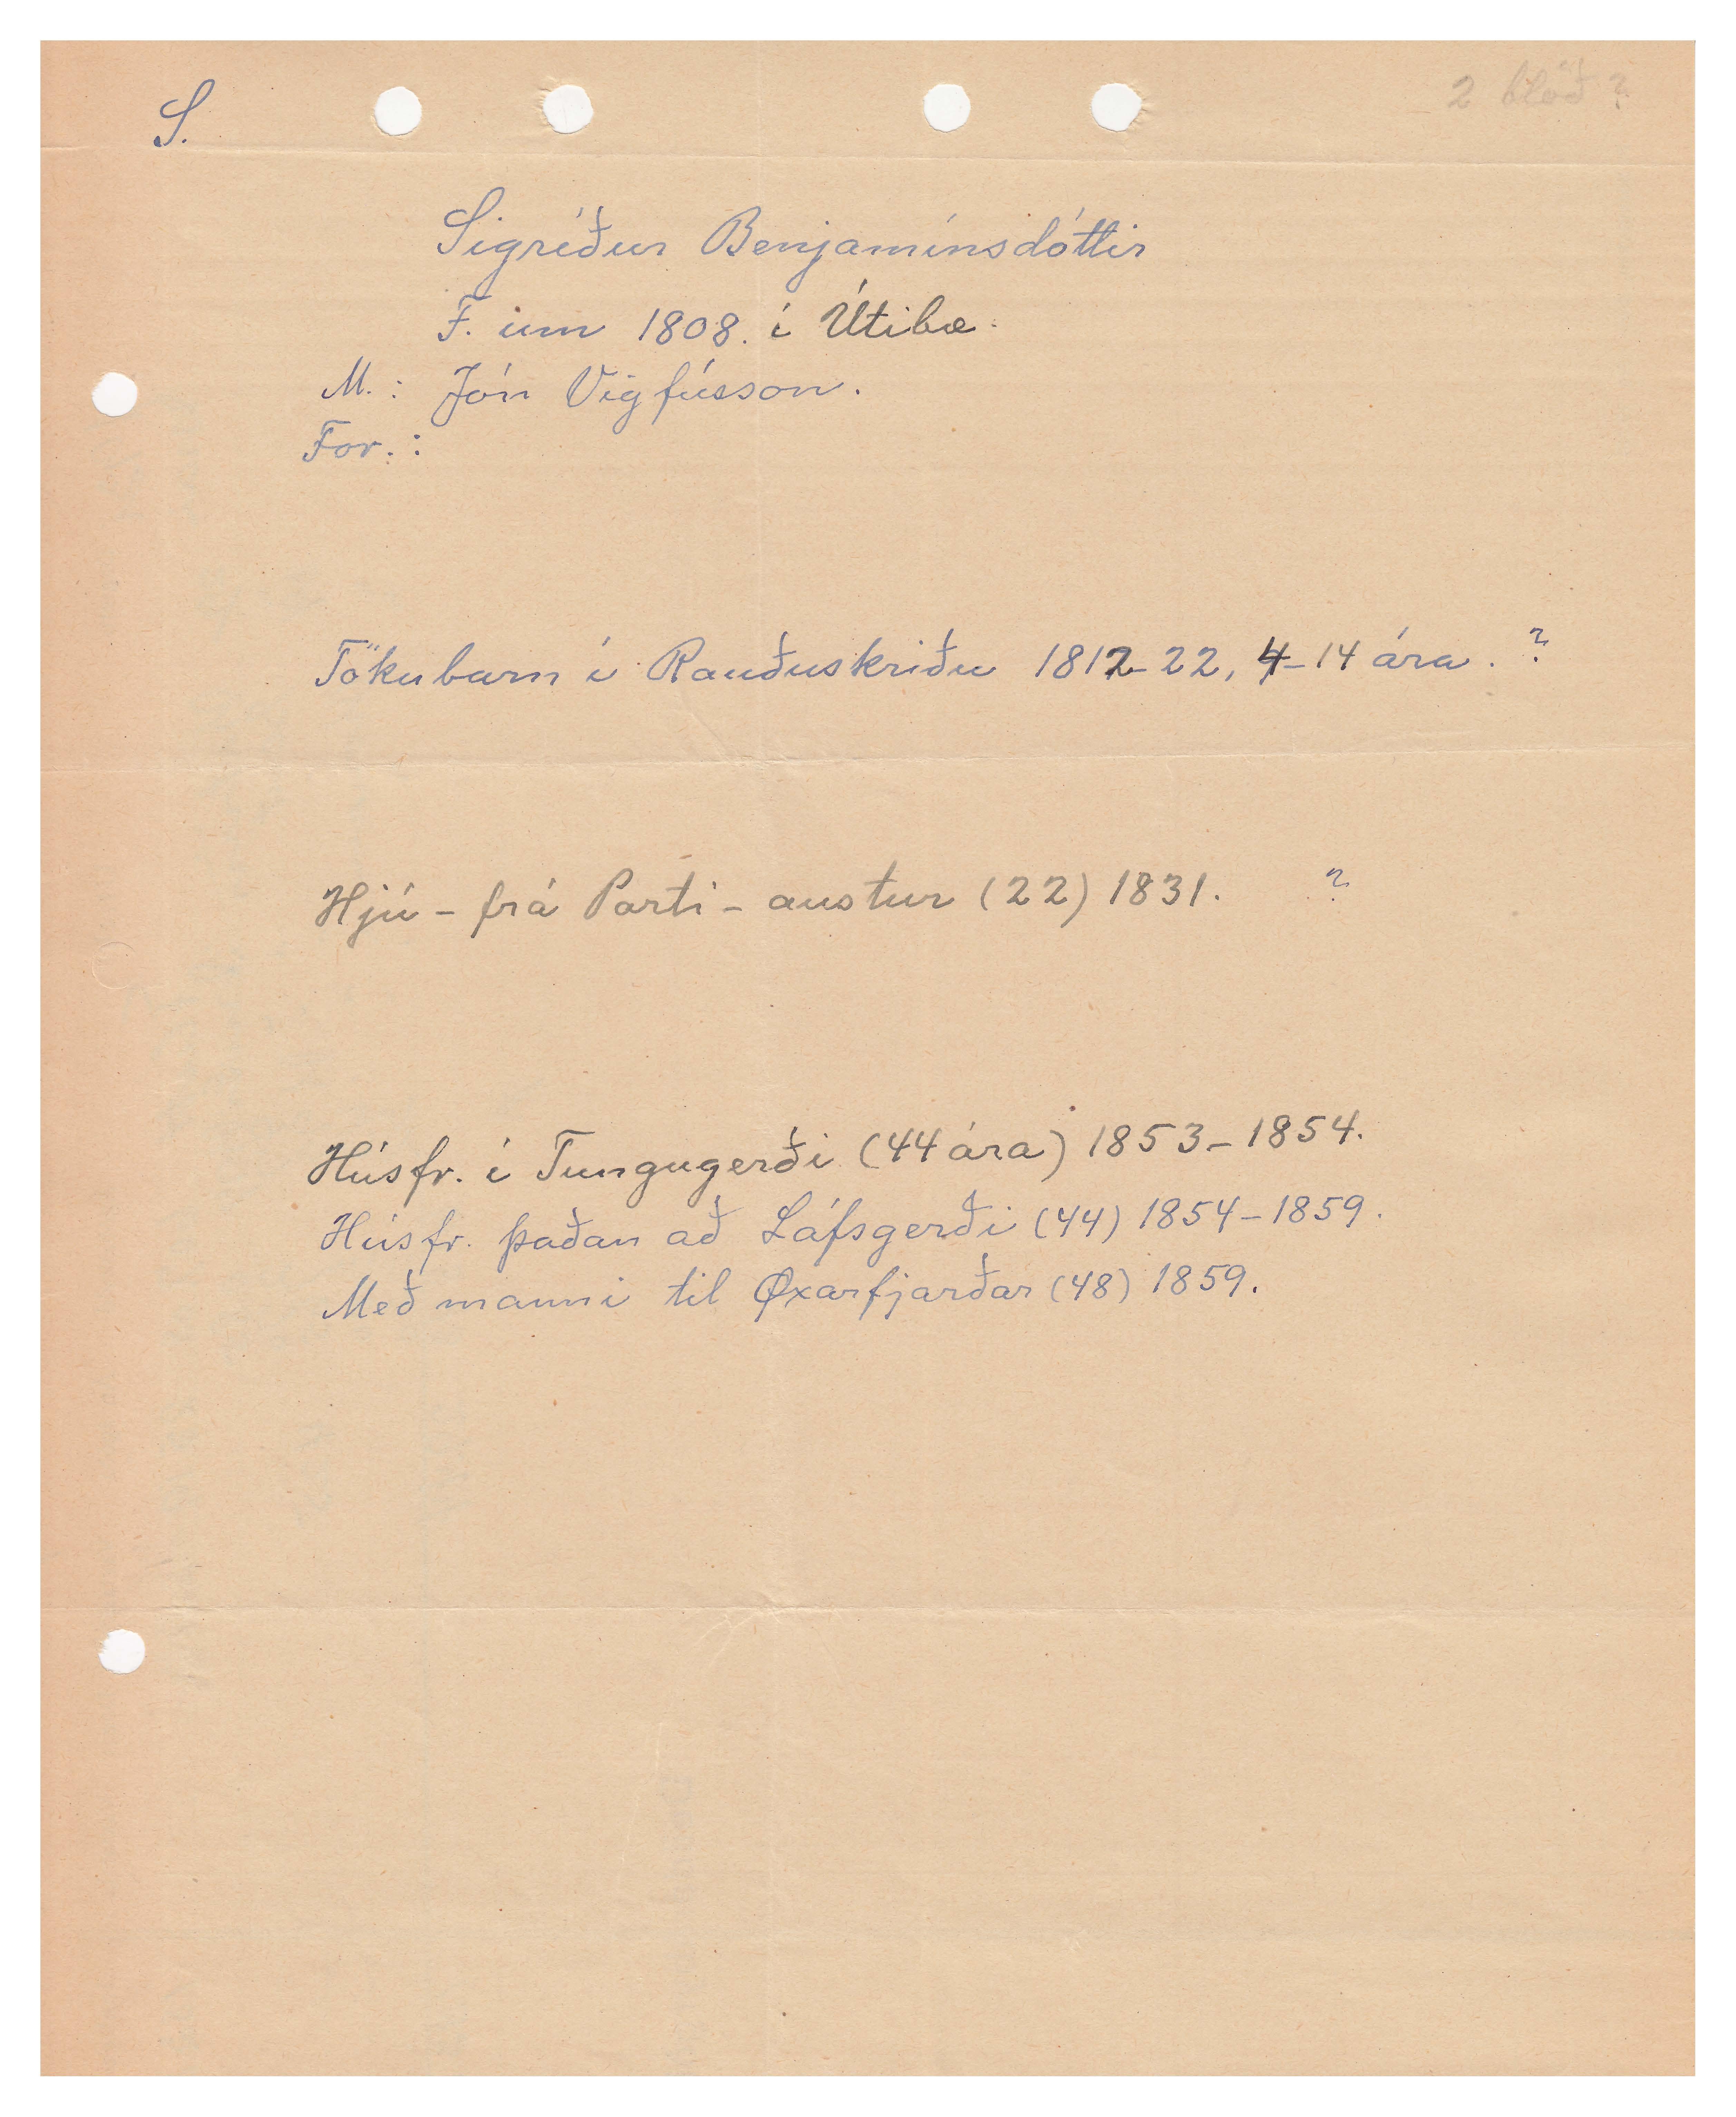 2 blöð ?
S.
Sigríður Benjamínsdóttir
F. um 1808. í Útibæ.
M.: Jón Vigfússon.
For.:
Tökubarn í Rauðuskriðu 1812-22, 4-14 ára. ?
Hjú - frá Parti - austur (22) 1831. ?
Húsfr. í Tungugerði (44 ára) 1853-1854.
Húsfr. þaðan að Láfsgerði (44) 1854-1859.
Með manni til Øxarfjarðar (48) 1859.